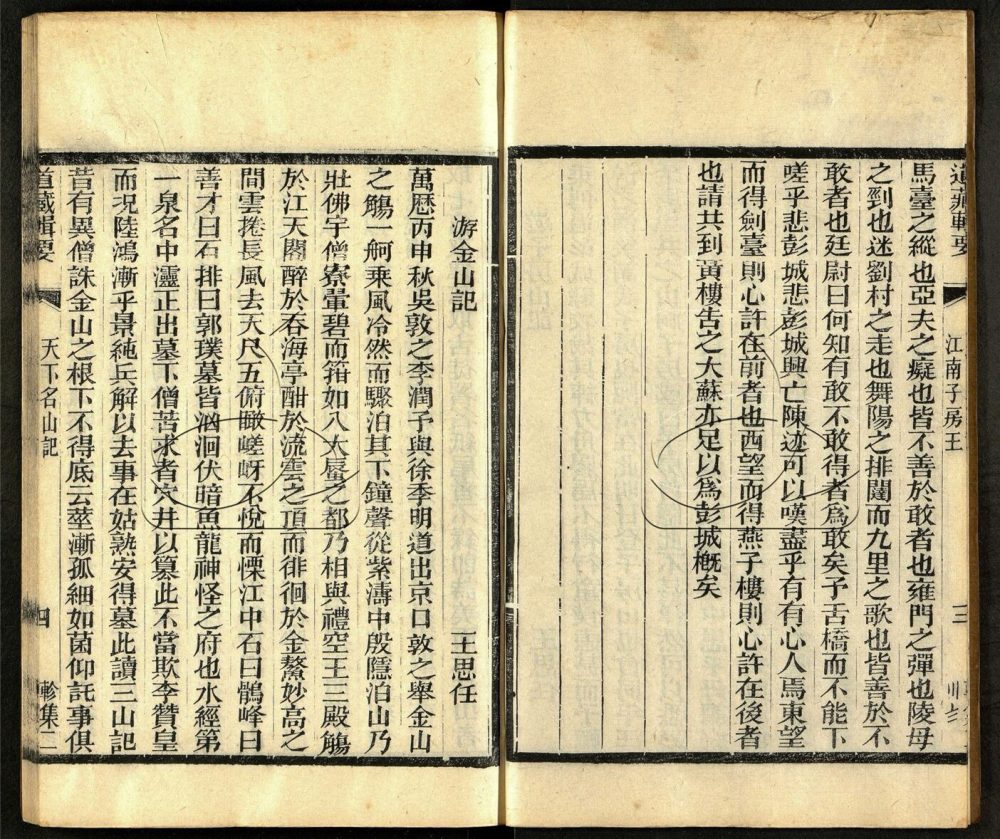 道藏輯要
江南子房王
三
馬臺之縱也亞夫之癡也皆不善於敢者也雍門之彈也陵母
之剄也迷劉村之走也舞陽之排闥而九里之歌也皆善於不
敢者也廷尉曰何知有敢不敢得者為敢矣予舌橋而不能下
嗟乎悲彭城悲彭城興亡陳迹可以嘆盡乎有有心人焉東望
而得劍臺則心許在前者也西望而得燕子樓則心許在後者
也請共到黃樓告之大蘇亦足以為彭城慨矣
游金山記
王思任
萬歷丙申秋吳敦之李潤予與徐季明道出京口敦之舉金山
之觴一舸乘風冷然而驟泊其下鐘聲從紫濤中殷隱泊山乃
壯佛宇僧寮暈碧而箝如八大蜃之都乃相與禮空王三殿觴
於江天閣醉於吞海亭酣於流雲之頂而徘徊於金鰲妙高之
間雲捲長風去天尺五俯瞰嵯岈不悅而慄江中石曰鶻峰曰
善才曰石排曰郭璞墓皆㴽洄伏暗魚龍神怪之府也水經第
一泉名中𤅷正出墓下僧苦求者穴井以篡此不當欺李贊皇
而況陸鴻漸乎景純兵解以去事在姑熟安得墓此讀三山記
昔有異僧誅金山之根下不得底云莖漸孤細如菌仰託事俱
道藏輯要
天下名山記
四
軫集二